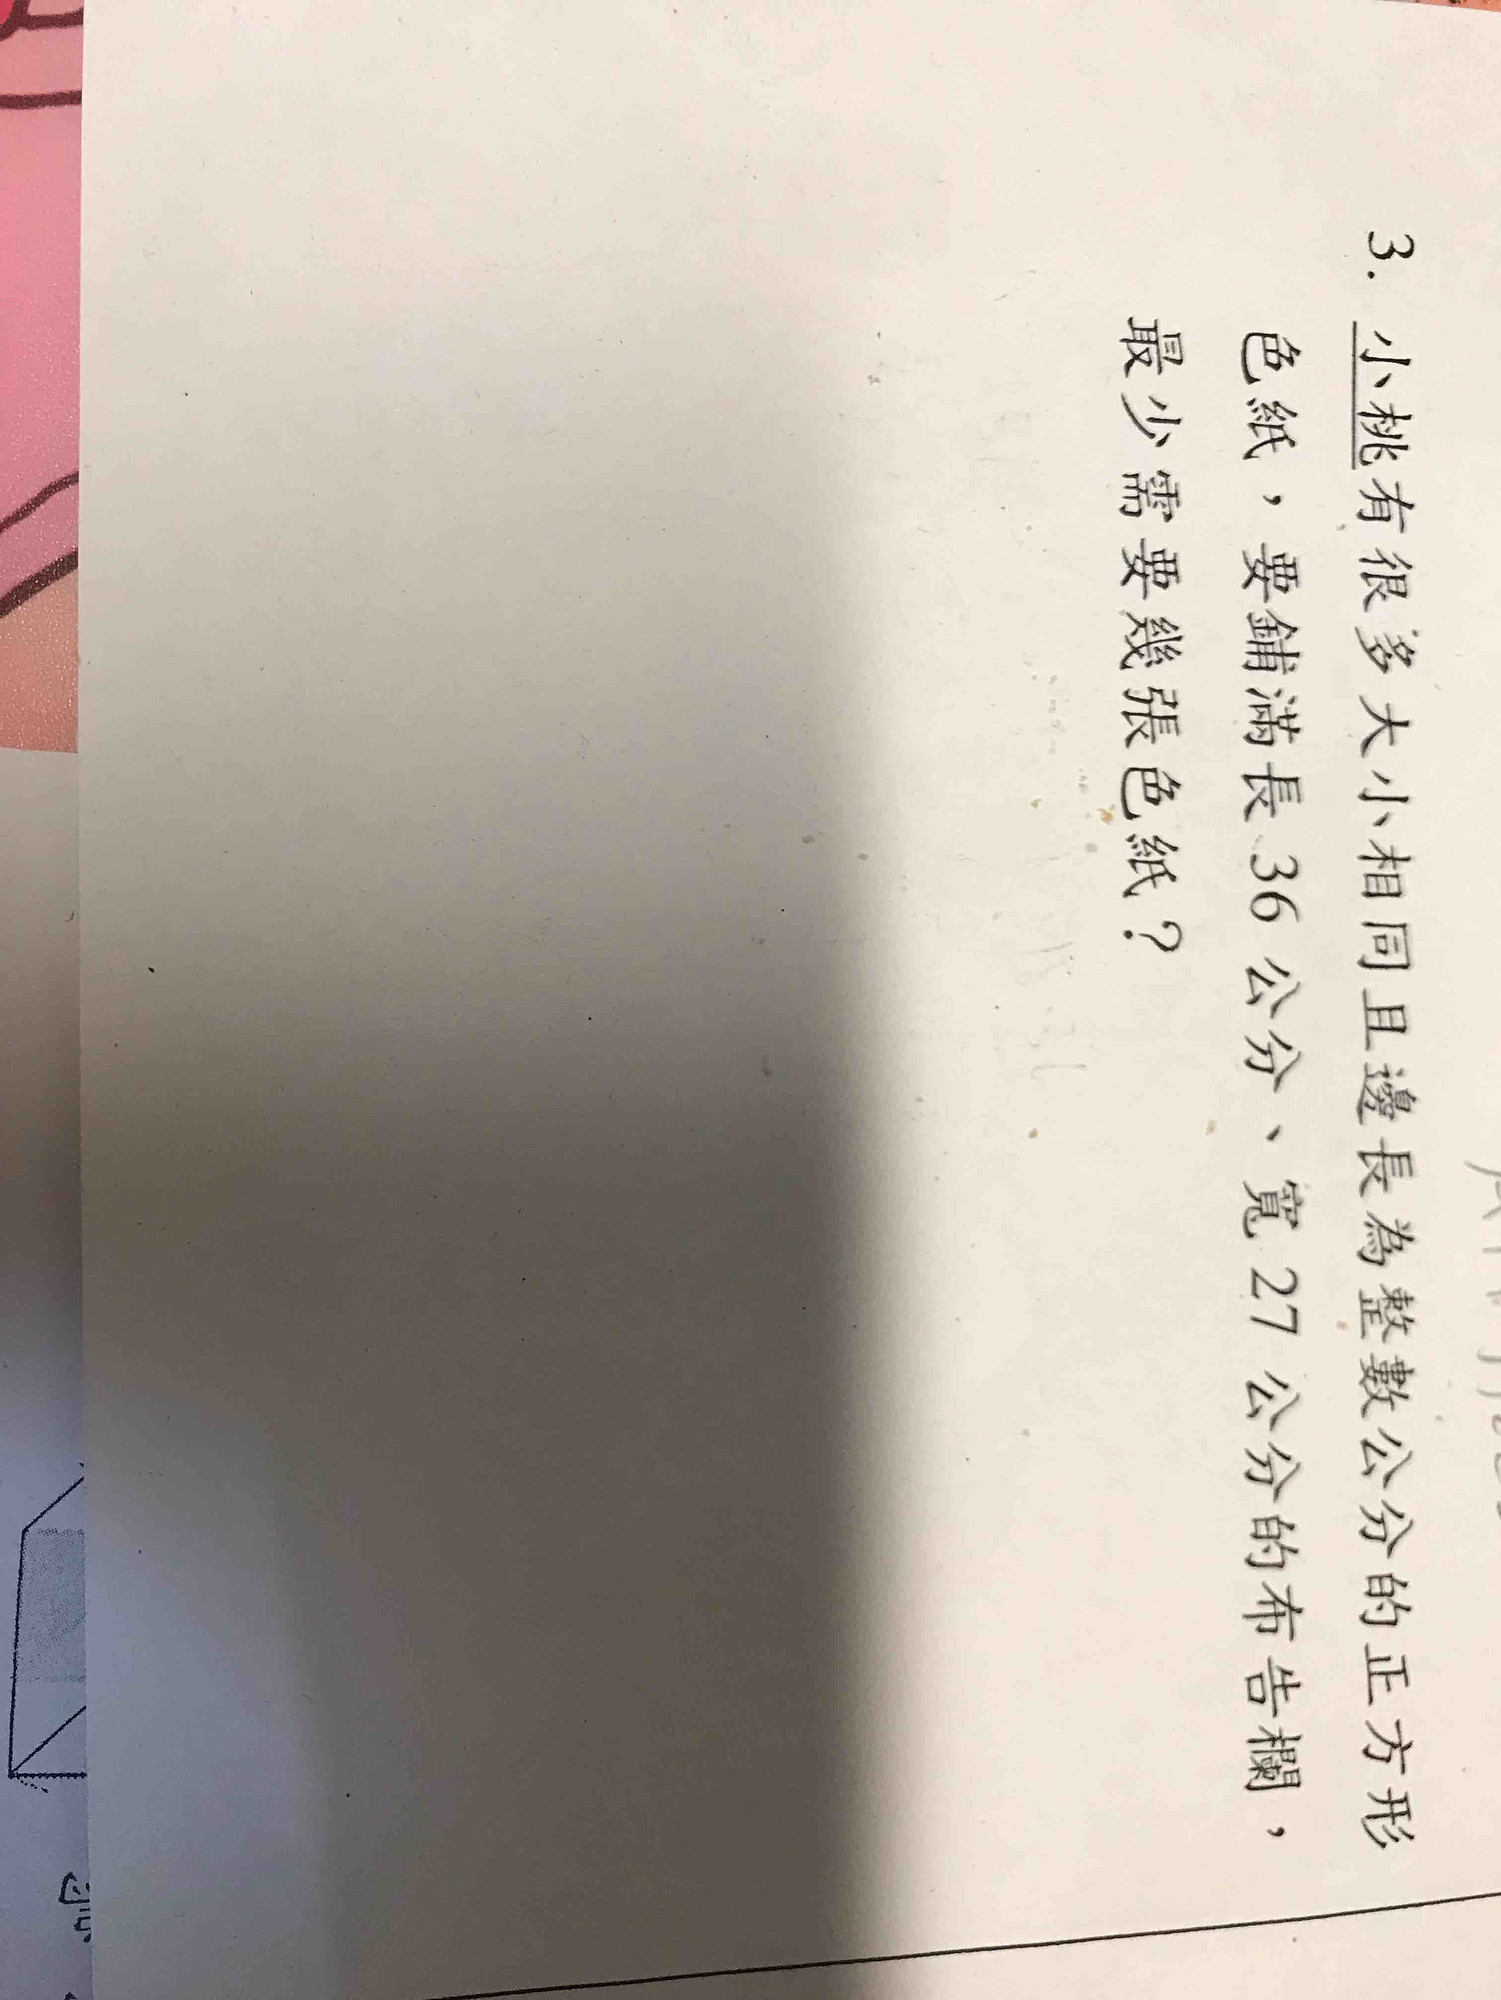 3. 小桃有很多大小相同且邊長為整數公分的正方形
色紙，要鋪滿長 36 公分、寬 27 公分的布告欄，
最少需要幾張色紙？